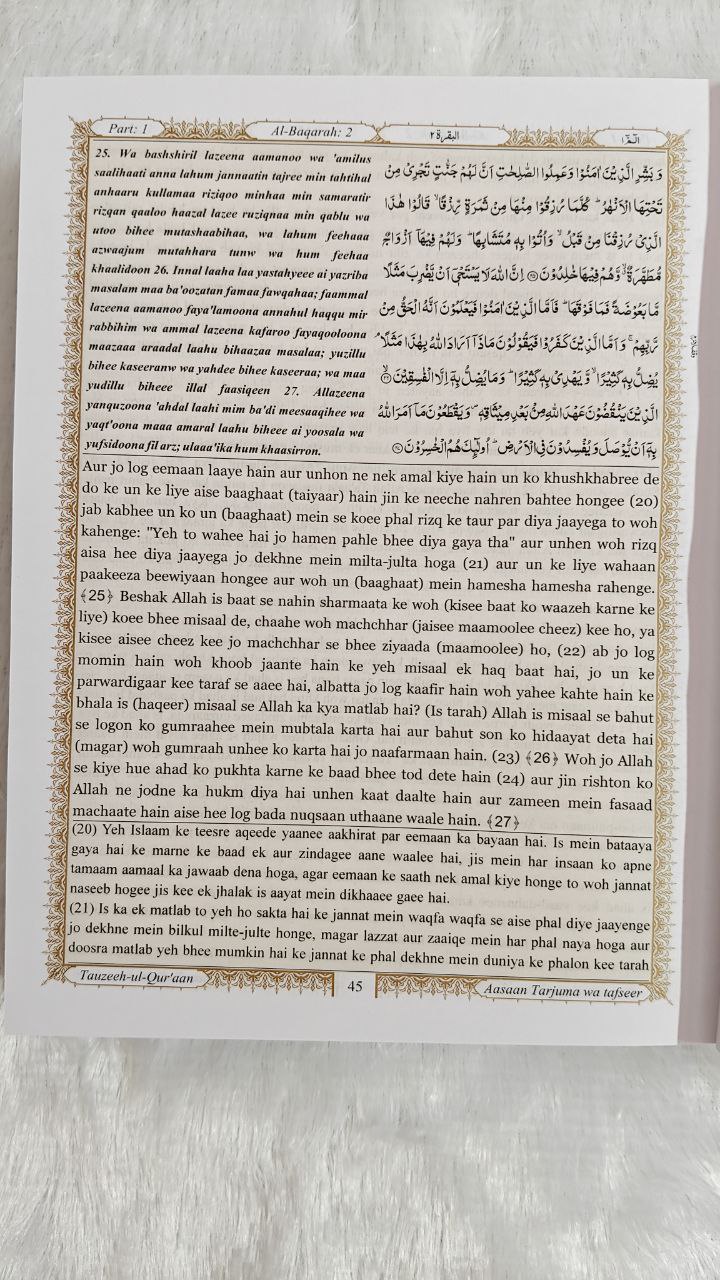 Part: 1
Al-Baqarah: 2
البقرة ٢
الٓمّٓ ١
25. Wa bashshiril lazeena aamanoo wa 'amilus
saalihaati anna lahum jannaatin tajree min tahtihal
anhaaru kullamaa riziqoo minhaa min samaratir
rizqan qaaloo haazal lazee ruziqnaa min qablu wa
utoo bihee mutashaabihaa, wa lahum feehaaa
azwaajum mutahhara tunw wa hum feehaa
khaalidoon 26. Innal laaha laa yastahyeee ai yazriba
masalam maa ba'oozatan famaa fawqahaa; faammal
lazeena aamanoo faya'lamoona annahul haqqu mir
rabbihim wa ammal lazeena kafaroo fayaqooloona
maazaaa araadal laahu bihaazaa masalaa; yuzillu
bihee kaseeranw wa yahdee bihee kaseeraa; wa maa
yudillu biheee illal faasiqeen 27. Allazeena
yanquzoona 'ahdal laahi mim ba'di meesaaqihee wa
yaqt'oona maaa amaral laahu biheee ai yoosala wa
yufsidoona fil arz; ulaaa'ika hum khaasirron.
وَ بَشِّرِ الَّذِیْنَ اٰمَنُوْا وَعَمِلُوا الصّٰلِحٰتِ اَنَّ لَهُمْ جَنّٰتٍ تَجْرِیْ مِنْ
تَحْتِهَا الْاَنْهٰرُ ؕ كُلَّمَا رُزِقُوْا مِنْهَا مِنْ ثَمَرَةٍ رِّزْقًا ۙ قَالُوْا هٰذَا
الَّذِیْ رُزِقْنَا مِنْ قَبْلُ ۙ وَاُتُوْا بِهٖ مُتَشَابِهًا ؕ وَلَهُمْ فِیْهَاۤ اَزْوَاجٌ
مُّطَهَّرَةٌ ۙ وَّهُمْ فِیْهَا خٰلِدُوْنَ ۝۲۵ اِنَّ اللّٰهَ لَا یَسْتَحْیٖۤ اَنْ یَّضْرِبَ مَثَلًا
مَّا بَعُوْضَةً فَمَا فَوْقَهَا ؕ فَاَمَّا الَّذِیْنَ اٰمَنُوْا فَیَعْلَمُوْنَ اَنَّهُ الْحَقُّ مِنْ
رَّبِّهِمْ ۚ وَاَمَّا الَّذِیْنَ كَفَرُوْا فَیَقُوْلُوْنَ مَاذَاۤ اَرَادَ اللّٰهُ بِهٰذَا مَثَلًا ۘ
یُضِلُّ بِهٖ كَثِیْرًا ۙ وَّیَهْدِیْ بِهٖ كَثِیْرًا ؕ وَمَا یُضِلُّ بِهٖۤ اِلَّا الْفٰسِقِیْنَ ۝۲۶ۙ
الَّذِیْنَ یَنْقُضُوْنَ عَهْدَ اللّٰهِ مِنْۢ بَعْدِ مِیْثَاقِهٖ ۪ وَیَقْطَعُوْنَ مَاۤ اَمَرَ اللّٰهُ
بِهٖۤ اَنْ یُّوْصَلَ وَیُفْسِدُوْنَ فِی الْاَرْضِ ؕ اُولٰٓئِكَ هُمُ الْخٰسِرُوْنَ ۝۲۷
Aur jo log eemaan laaye hain aur unhon ne nek amal kiye hain un ko khushkhabree de
do ke un ke liye aise baaghaat (taiyaar) hain jin ke neeche nahren bahtee hongee (20)
jab kabhee un ko un (baaghaat) mein se koee phal rizq ke taur par diya jaayega to woh
kahenge: "Yeh to wahee hai jo hamen pahle bhee diya gaya tha" aur unhen woh rizq
aisa hee diya jaayega jo dekhne mein milta-julta hoga (21) aur un ke liye wahaan
paakeeza beewiyaan hongee aur woh un (baaghaat) mein hamesha hamesha rahenge.
﴾25﴿ Beshak Allah is baat se nahin sharmaata ke woh (kisee baat ko waazeh karne ke
liye) koee bhee misaal de, chaahe woh machchhar (jaisee maamoolee cheez) kee ho, ya
kisee aisee cheez kee jo machchhar se bhee ziyaada (maamoolee) ho, (22) ab jo log
momin hain woh khoob jaante hain ke yeh misaal ek haq baat hai, jo un ke
parwardigaar kee taraf se aaee hai, albatta jo log kaafir hain woh yahee kahte hain ke
bhala is (haqeer) misaal se Allah ka kya matlab hai? (Is tarah) Allah is misaal se bahut
se logon ko gumraahee mein mubtala karta hai aur bahut son ko hidaayat deta hai
(magar) woh gumraah unhee ko karta hai jo naafarmaan hain. (23) ﴾26﴿ Woh jo Allah
se kiye hue ahad ko pukhta karne ke baad bhee tod dete hain (24) aur jin rishton ko
Allah ne jodne ka hukm diya hai unhen kaat daalte hain aur zameen mein fasaad
machaate hain aise hee log bada nuqsaan uthaane waale hain. ﴾27﴿
(20) Yeh Islaam ke teesre aqeede yaanee aakhirat par eemaan ka bayaan hai. Is mein bataaya
gaya hai ke marne ke baad ek aur zindagee aane waalee hai, jis mein har insaan ko apne
tamaam aamaal ka jawaab dena hoga, agar eemaan ke saath nek amal kiye honge to woh jannat
naseeb hogee jis kee ek jhalak is aayat mein dikhaaee gaee hai.
(21) Is ka ek matlab to yeh ho sakta hai ke jannat mein waqfa waqfa se aise phal diye jaayenge
jo dekhne mein bilkul milte-julte honge, magar lazzat aur zaaiqe mein har phal naya hoga aur
doosra matlab yeh bhee mumkin hai ke jannat ke phal dekhne mein duniya ke phalon kee tarah
Tauzeeh-ul-Qur'aan
45
Aasaan Tarjuma wa tafseer